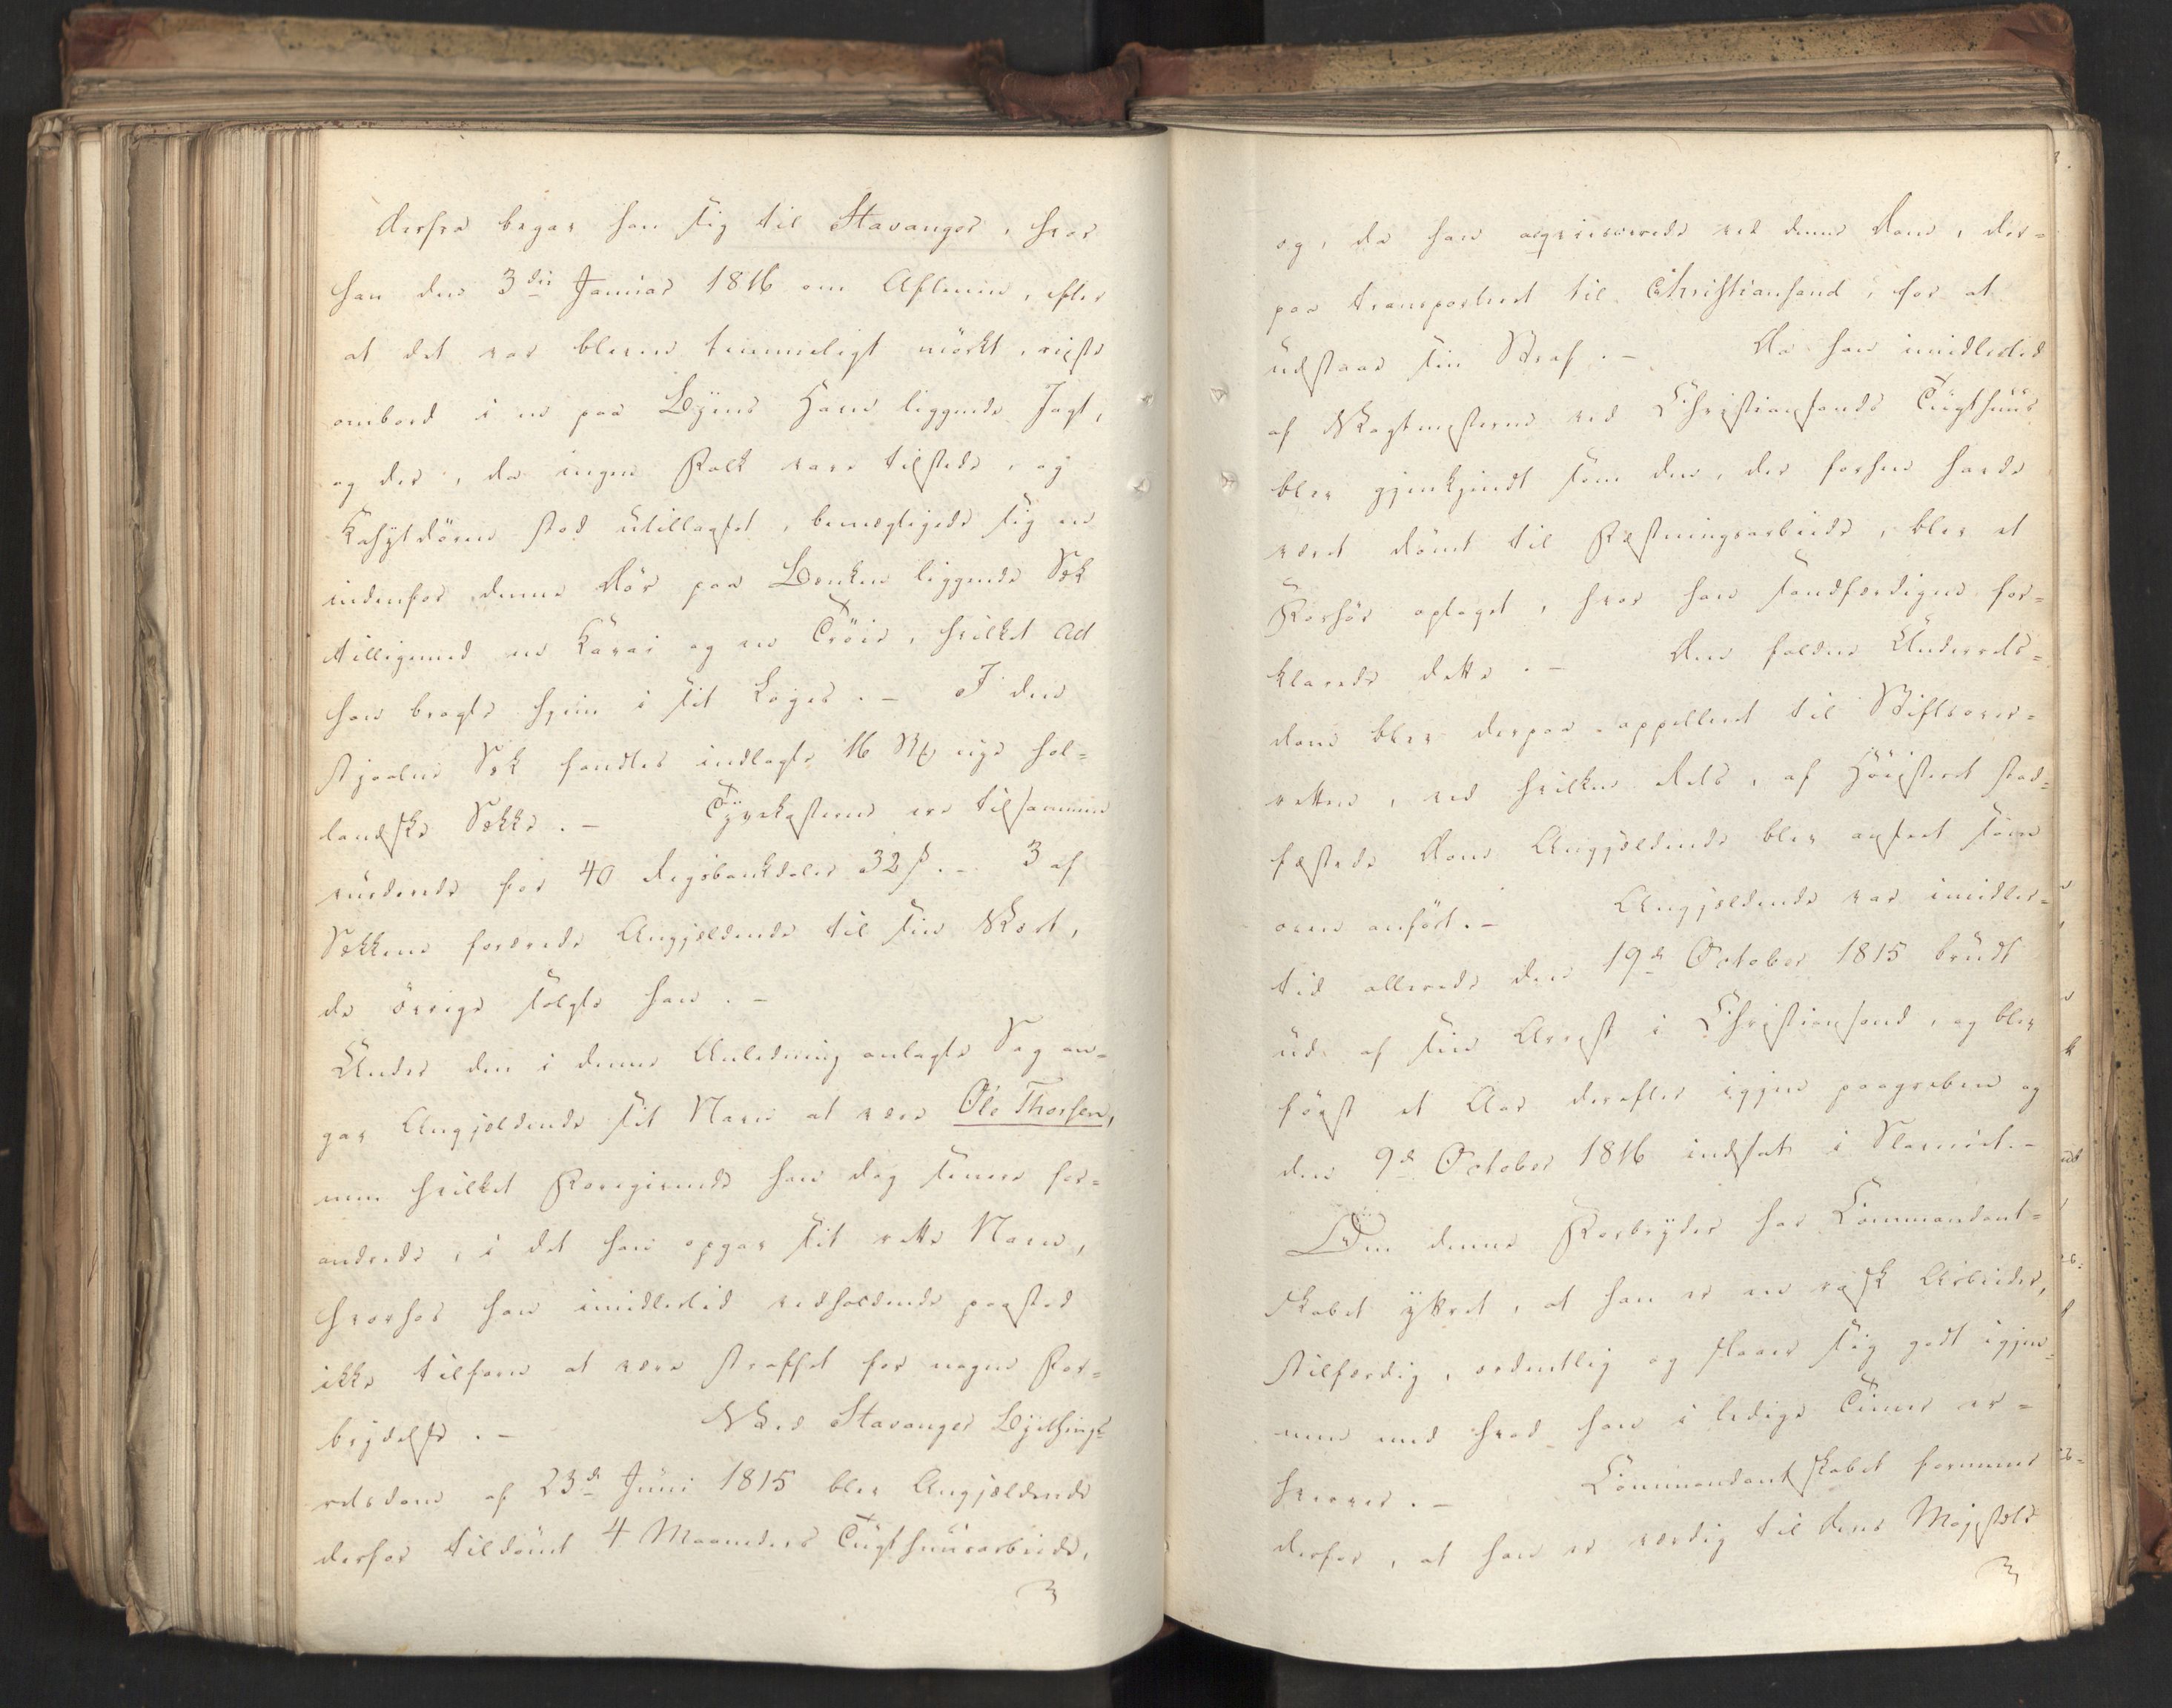 derfra begav han sig til Stavanger, hvor
han den 3die Januar 1816 om Aftenen, efter
at det var bleven temmeligt mörkt, reiste
ombord i en paa Byens Havn liggende Jagt,
og der, da ingen Folk vare tilstede, og
Kahytdören stod utillaaset, bemægtigede sig en
indenfor denne Dör paa Bænken liggende Sæk
tilligemed en Kavai og en Tröie, hvilket alt
han bragte hjem i sit Logis. – I den
stjaalne Sæk fandtes indlagte 16 nye hol=
landske Sække. – Tyvekosterne ere tilsammen
vurderede for 40 Rigsbankdaler 32 s. – 3 af
Sækkene forærede Angjældende til sin Vært,
de övrige solgte han. –
Under den i denne Anledning anlagte Sag an=
gav Angjældende sit Navn at være Ole Thorsen,
men hvilket Foregivende han dog senere for=
andrede, i det han opgav sit rette Navn,
hvorhos han imidlertid vedholdende paastod
ikke tilforn at være straffet for nogen For=
brydelse. – Ved Stavanger Byethings=
retsdom af 23de Juni 1815 blev Angjældende
derfor tildömt 4 Maaneders Tugthuusarbeide,
og, da han acqviescerede ved denne Dom, der=
paa transporteret til Christiansand, for at
udstaae sin Straf. – Da han imidlertid
af Vagtmesteren ved Christiansands Tugthuus
blev gjenkjendt som den, der forhen havde
været dömt til Fæstningsarbeide, blev et
Forhör optaget, hvor han sandfærdigen for=
klarede dette. – Den faldne Underrets=
dom blev derpaa appelleret til Stiftsover=
retten, ved hvilken Rets, af Höiesteret stad=
fæstede Dom Angjældende blev anseet som
oven anfört. – Angjældende var imidler=
tid allerede den 19de October 1815 brudt
ud af sin Arrest i Christiansand, og blev
först et Aar derefter igjen paagreben og
den 9de October 1816 indsat i Slaveriet. –
Om denne Forbryder har Commandant=
skabet yttret, at han er en rask Arbeider,
stilfærdig, ordentlig og slaaer sig godt igjen=
nem med hvad han i ledige Timer er=
hverver. – Commandantskabet formener
derfor, at han er værdig til Deres Majestæts